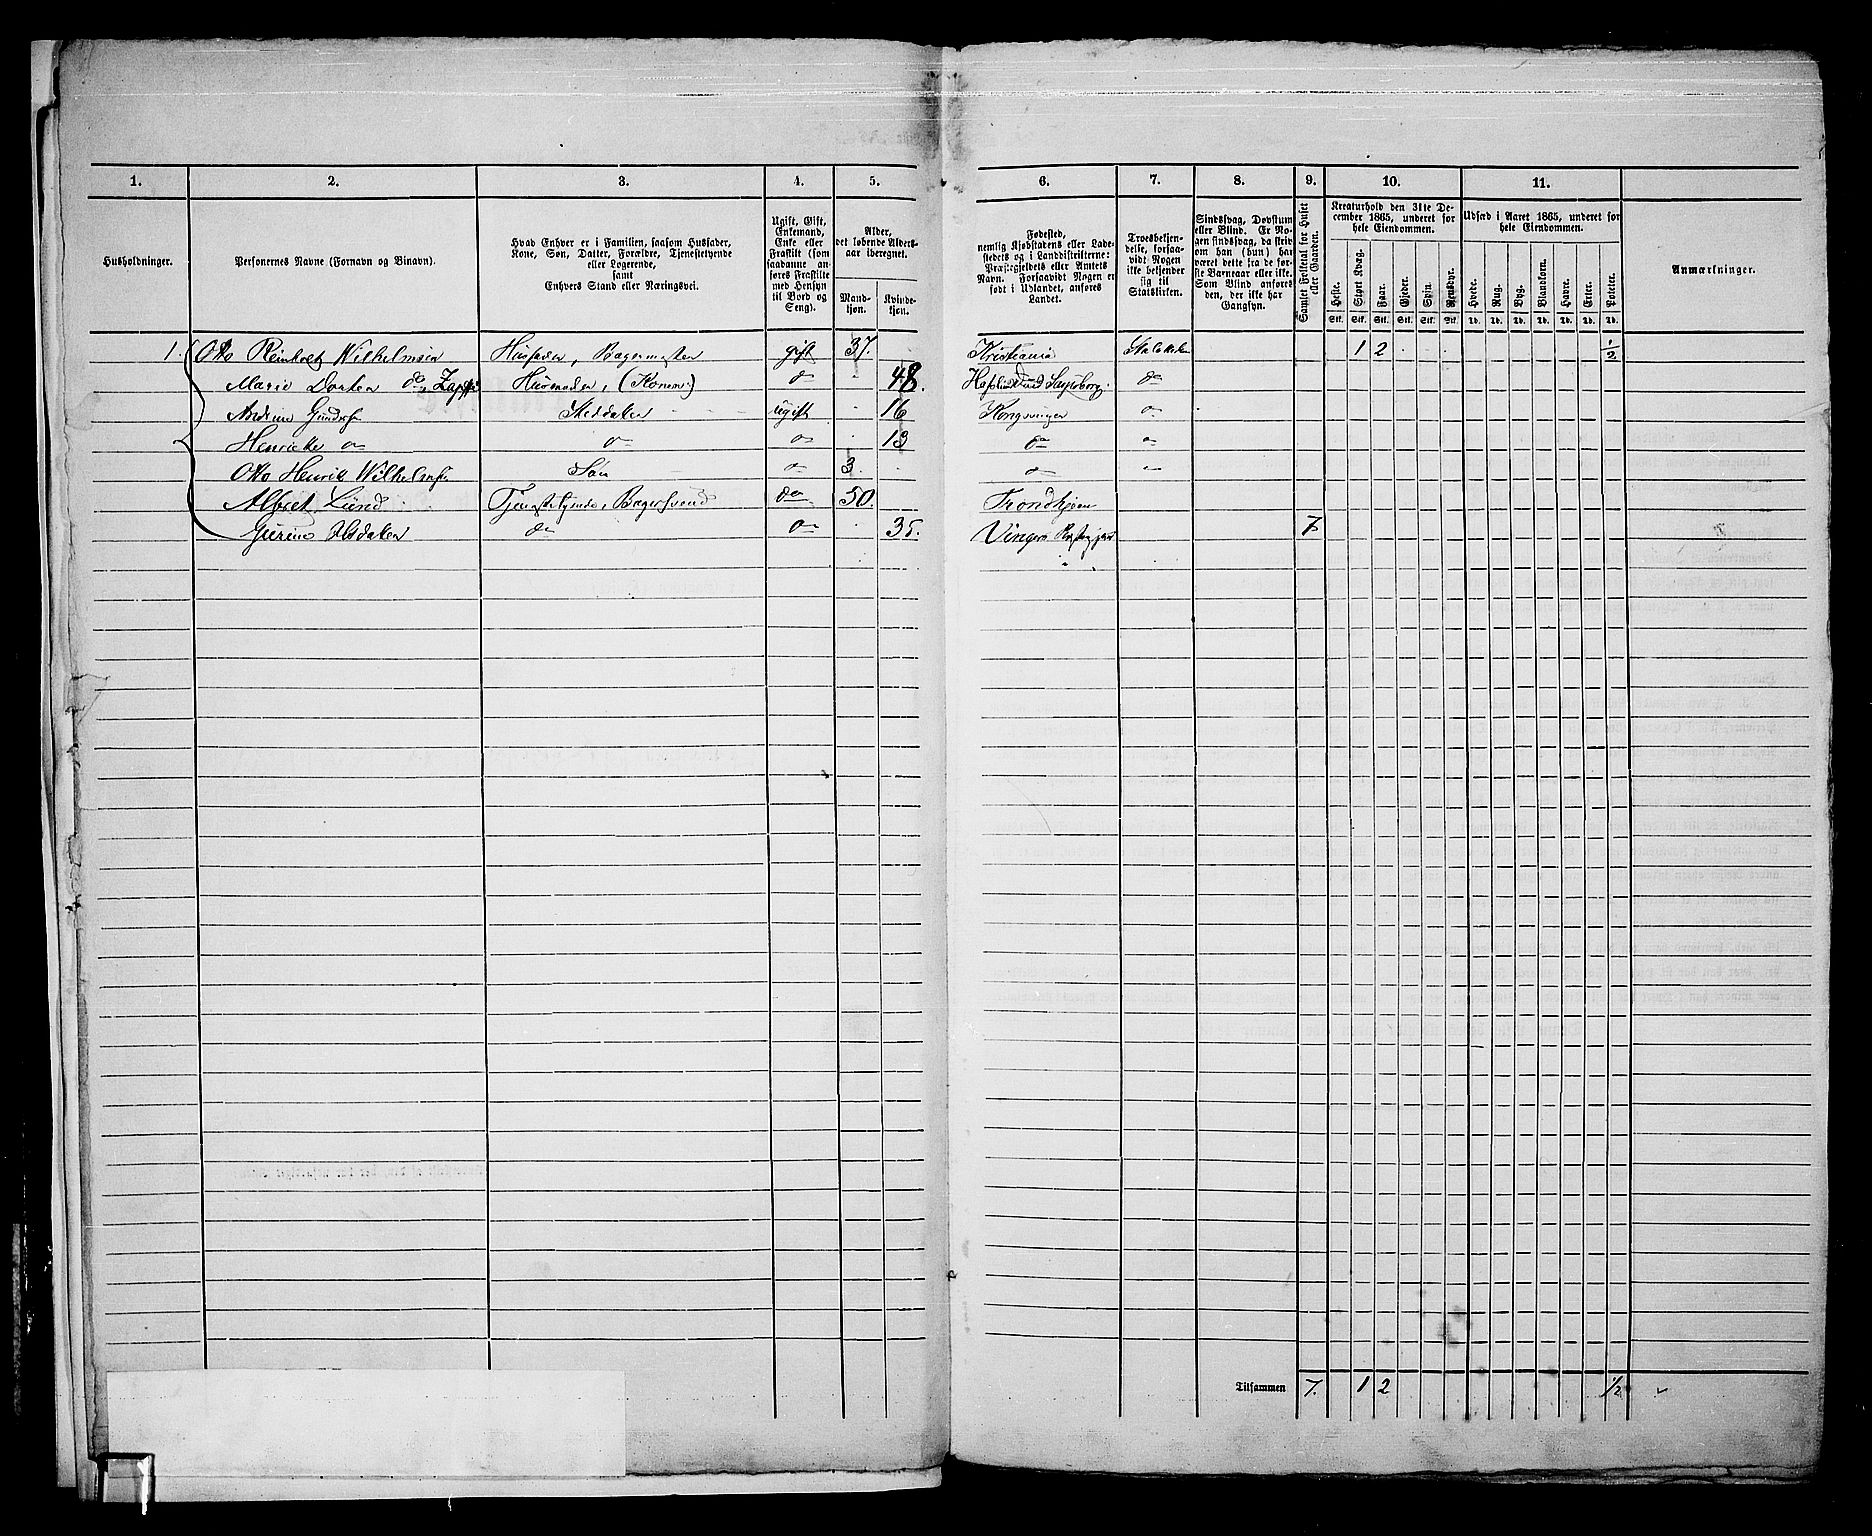 1. 2. 3. 4. 5. 6. 7. 8. 9. 10. 11.
Husholdninger.
Personernes Navne (Fornavn og Binavn).
Hvad Enhver er i Familien, saasom Husfader,
Kone, Søn, Datter, Forældre, Tjenestetyende
eller Logerende,
samt
Enhvers Stand eller Næringsvei.
Ugift, Gift,
Enkemand,
Enke eller
Fraskilt (som
saadanne an-
føres Fraskilte
med Hensyn
til Bord og
Seng).
Alder,
det løbende Alders-
aar iberegnet.
Mand-
kjøn.
Kvinde-
kjøn.
Fødested,
nemlig Kjøbstadens eller Lade-
stedets og i Landdistrikterne:
Præstegjeldets eller Amtets
Navn. Forsaavidt Nogen er
født i Udlandet, anføres
Landet.
Troesbekjen-
delse, forsaa-
vidt Nogen
ikke bekjender
sig til
Statskirken.
Sindssvag, Døvstum
eller Blind. Er No-
gen sindssvag, da skriv
om han (hun) har
været dette fra de før-
ste Barneaar eller ikke.
Som Blind anføres
den, der ikke har
Gangsyn.
Samlet Folketal for Huset
eller Gaarden.
Kreaturhold den 31te De-
cember 1865, underet for
hele Eiendommen.
Heste. Stort Kvæg. Faar. Gjeder. Svin. Rensdyr.
Stk. Stk. Stk. Stk. Stk. Stk.
Udsæd i Aaret 1865, underet for
hele Eiendommen.
Hvede. Rug. Byg. Blandkorn. Havre. Erter. Poteter.
Td. Td. Td. Td. Td. Td. Td.
Anmærkninger.
1. Otto Reinhret Wilhelmsen Husfader, Bagermester gift 37. Kristiania Statskirken 1 2 1/2
Marie Dortea do, Husmoder, (Konem) do 48. Hafslund ved Sarpsborg. do
Andrine Steddatter ugift 16 Kongsvinger do
Henriette do do do 13 do do
Otto Henrik Wilhelmsen Søn do 3. do do
Albret Lund Tjenestetyende, Bagersvend do 50. Trondhjem
do do 35. Vingers Præstegjeld 7
Tilsammen 7. 1 2 1/2